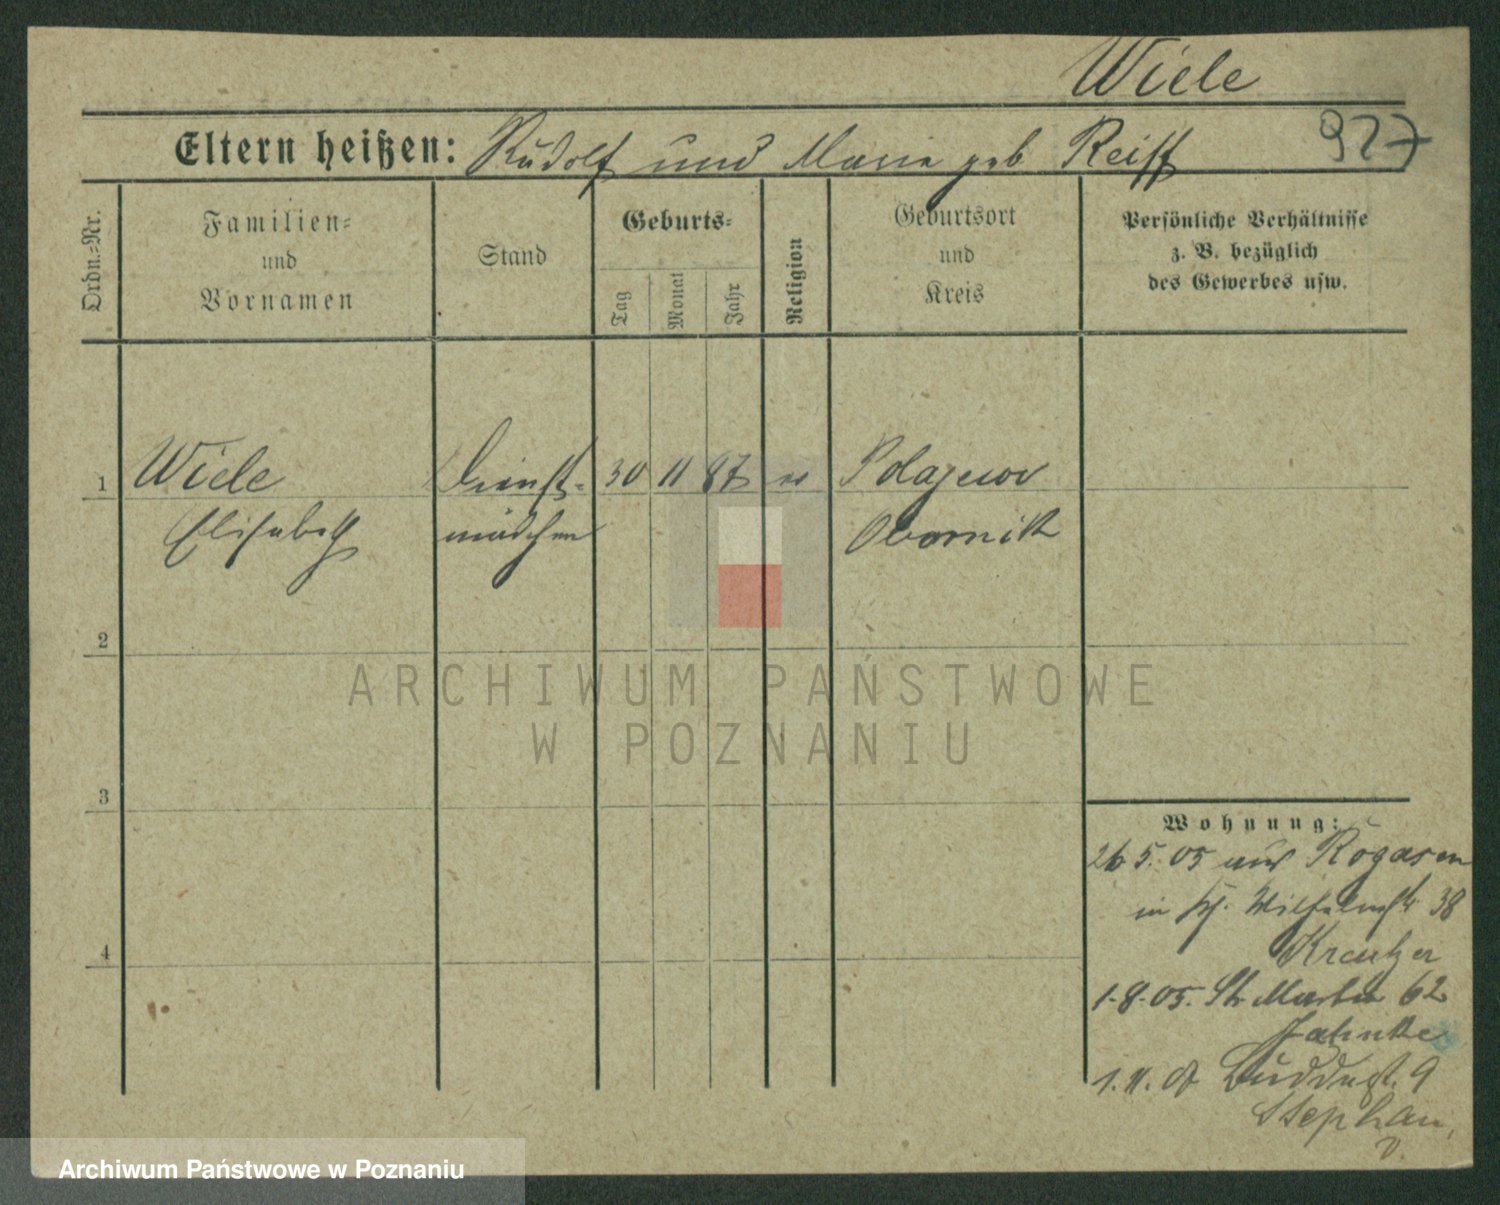 Wiele
Eltern heißen: Rudolf und Marie geb Reiff
927
Ordn.-Nr.
Familien-
und
Vornamen
Stand
Geburts-
Tag
Monat
Jahr
Religion
Geburtsort
und
Kreis
Persönliche Verhältnisse
z. B. bezüglich
des Gewerbes usw.
1 Wiele Dienst- 30 11 87 Polajewo
Elisabeth mädchen Obornik
2
3
4
Wohnung:
26 5. 05 aus Rogasen
in Wilhelmstr 38
Kreutzer
1-8-05. St Martin 62
Jahnke
1. 11. 05 Buddest. 9
Stephan
ARCHIWUM PAŃSTWOWE
W POZNANIU
Archiwum Państwowe w Poznaniu